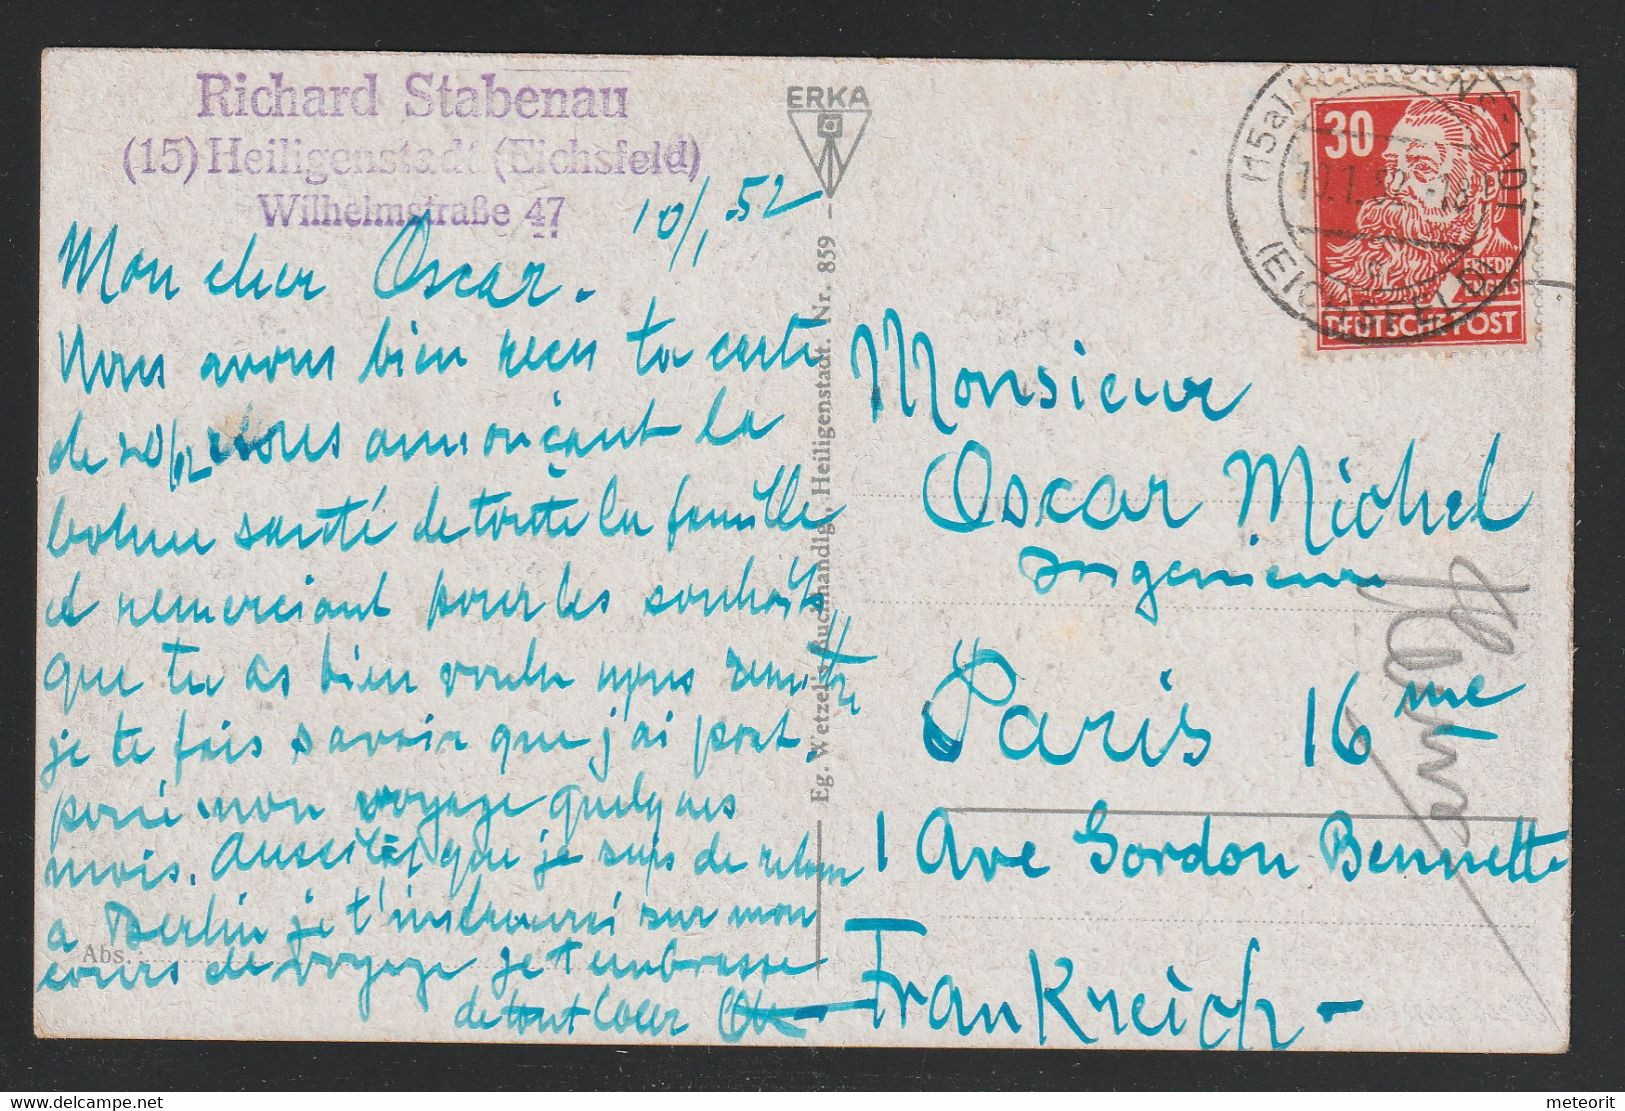 Richard Stabenau
(15) Heiligenstadt (Eichsfeld)
Wilhelmstraße 47
10/1 52
Mon cher Oscar.
Nous avons bien recu ta carte
de 20/12 annonçant la
bonne santé de toute la famille
et remerciant pour les souhaits
que tu as bien voulu nous
je te fais savoir que j'ai post-
poné mon voyage quelques
mois. Aussitôt que je suis de retour
a Berlin je t'informerai sur mon
cours de voyage je t'embrasse
de tout coeur
Abs.:
ERKA
Eg. Wetzel's Buchhandlg., Heiligenstadt. Nr. 859
30
FRIEDR.
ENGELS
DEUTSCHE POST
(15a) HEILIGENSTADT
10.1.52.-18
(EICHSFELD)
Monsieur
Oscar Michel
Ingenieur
Paris 16me
1 Ave Gordon Bennette
Frankreich-
meteorit